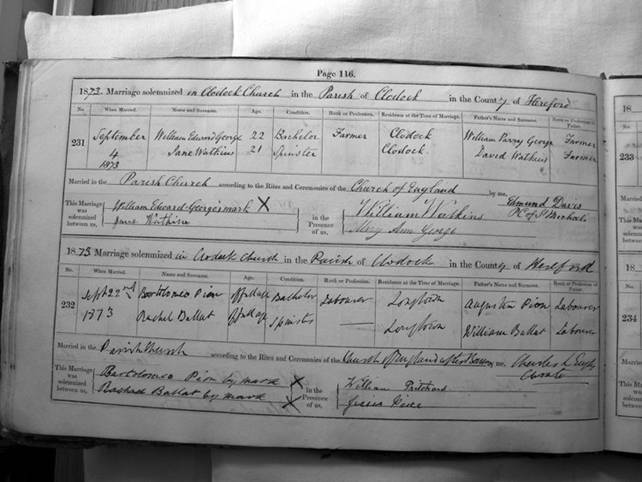 Page 116.
1873. Marriage solemnized in Clodock Church in the Parish of Clodock in the County of Hereford
No. When Married. Name and Surname. Age. Condition. Rank or Profession. Residence at the Time of Marriage. Father's Name and Surname. Rank or Profession of Father.
231 September William Edward George 22 Bachelor Farmer Clodock William Parry George Farmer
4 Jane Watkins 21 Spinster Clodock David Watkins Farmer
1873
Married in the Parish Church according to the Rites and Ceremonies of the Church of England by me, Edmund Davis
This Marriage was solemnized between us, William Edward George's mark X in the Presence of us, William Watkins
Jane Watkins Mary Ann George
1873 Marriage solemnized in Clodock Church in the Parish of Clodock in the County of Hereford
No. When Married. Name and Surname. Age. Condition. Rank or Profession. Residence at the Time of Marriage. Father's Name and Surname. Rank or Profession of Father.
232 Sept 22nd Bartolomeo Pion of full age Bachelor Labourer Longtown Augustus Pion Labourer
1873 Rachel Ballat of full age Spinster — Longtown William Ballat Labourer
Married in the Parish Church according to the Rites and Ceremonies of the Church of England after Banns by me, Charles L
Curate
This Marriage was solemnized between us, Bartolomeo Pion by mark X in the Presence of us, William Pritchard
Rachael Ballat by mark X
18
No.
233
18
No.
234